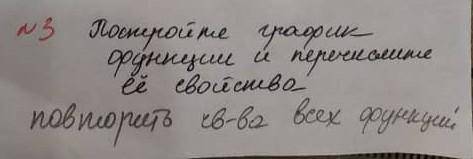 №3 Постройте график
функции и перечислите
её свойства
повторить св-ва всех функций